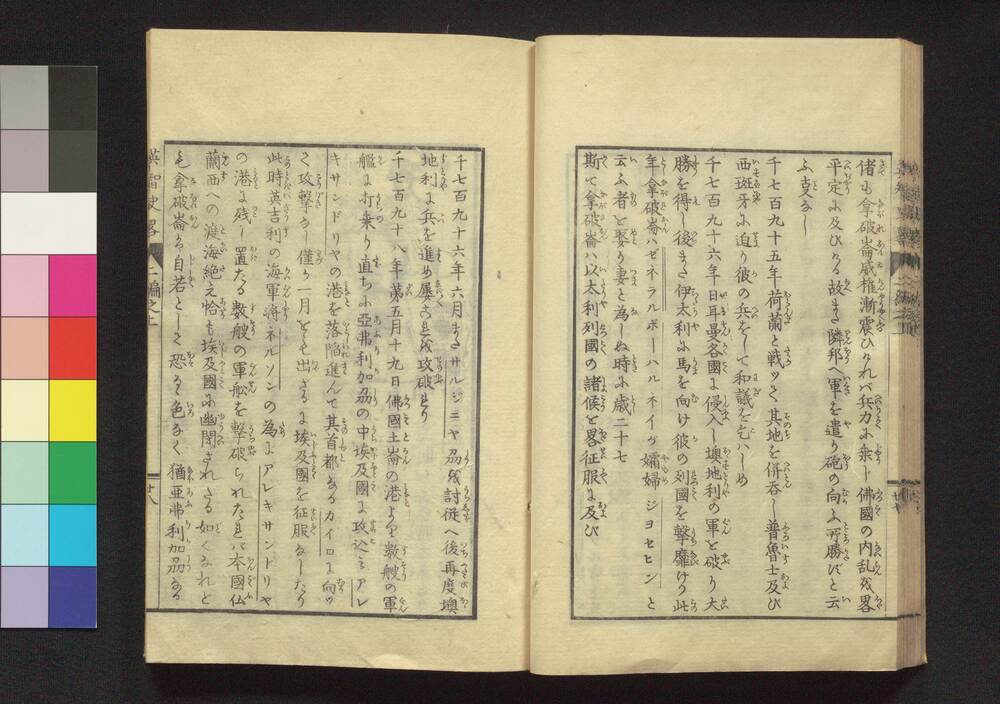 偖も拿破崙威権漸震ひけれバ兵力に乗し佛國の内乱を畧
平定に及ひける故また隣邦へ軍を遣り砲の向ふ所勝ずと云
ふ㕝なし
千七百九十五年荷蘭と戦ツて其地を併呑し普魯士及び
西斑牙に迫り彼の兵をして和議を乞ハしめ
千七百九十六年日耳曼各國に侵入し墺地利の軍を破り大
勝を得し後また伊太利に馬を向け彼の列國を撃靡けり此
年拿破崙ハゼネラルボーハルネイガ孀婦ジヨセヒンと
云ふ者を娶り妻と為しぬ時に歳二十七
斯て拿破崙ハ以太利列國の諸候を畧征服に及び
千七百九十六年六月またサルジニヤ刕を討従へ後再度墺
地利に兵を進め屡々是を攻破せり
千七百九十八年第五月十九日佛國土崙の港より数艘の軍
艦に打乗り直ちに亞弗利加刕の中埃及國に攻込ミアレ
キサンドリヤの港を落陥進んで其首都なるカイロに向ツ
て攻撃なし僅か一月をも出ざるに埃及國を征服なしたり
此時英吉利の海軍将ネルソンの為にアレキサンドリヤ
の港に残し置たる数艘の軍舩を撃破られたれバ本國仏
蘭西への渡海絶え恰も埃及國に幽閉されたる如くなれど
も拿破崙ハ自若として恐るゝ色なく猶亜弗利加刕なる
英智史畧 二編之上 廿八